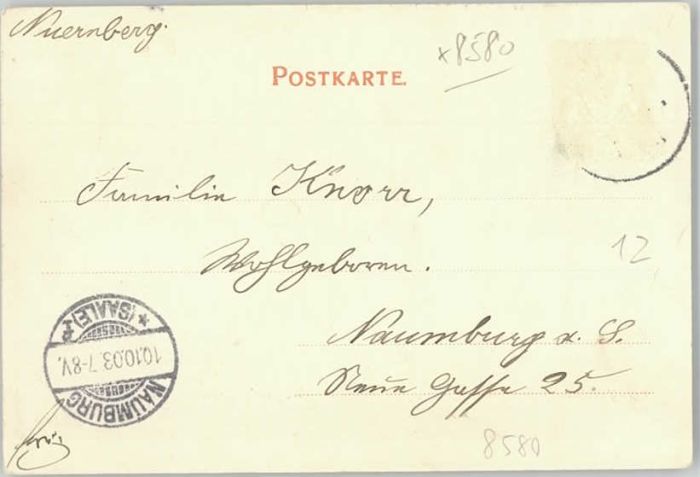 Nuernberg.
x8580
POSTKARTE.
Familie Knorr,
Wohlgeboren.
12
Naumburg a. S.
Neue Gasse 25.
NAUMBURG
10.10.03. 7-8V.
* (SAALE)
8580